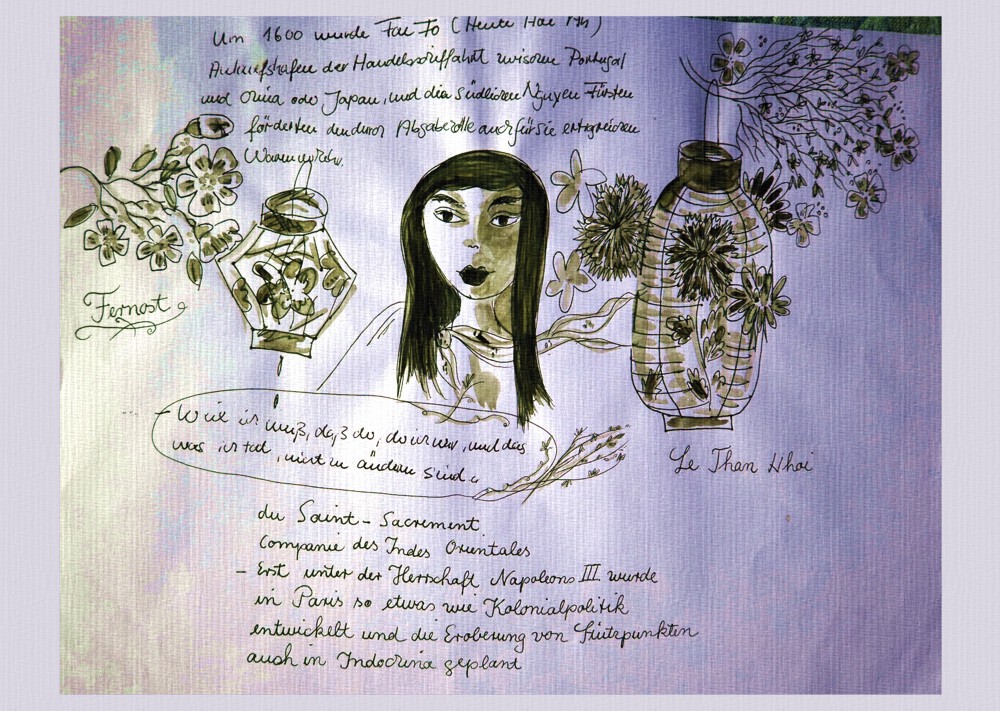 Um 1600 wurde Fai Fo (Heute Hoi An)
Ankunfshafen der Handelsschiffahrt zwischen Portugal
und China oder Japan, und die südlichen Nguyen Fürsten
förderten den durch Abgabezölle auch für sie ertragreichen
Warenverkehr.
Fernost
– Weil ich weiß, daß do, do ich war, und das
was ich tat, nicht zu ändern sind.
Le Than Khoi
du Saint-Sacrement
Companie des Indes Orientales
– Erst unter der Herrschaft Napoleons III. wurde
in Paris so etwas wie Kolonialpolitik
entwickelt und die Eroberung von Stützpunkten
auch in Indochina geplant